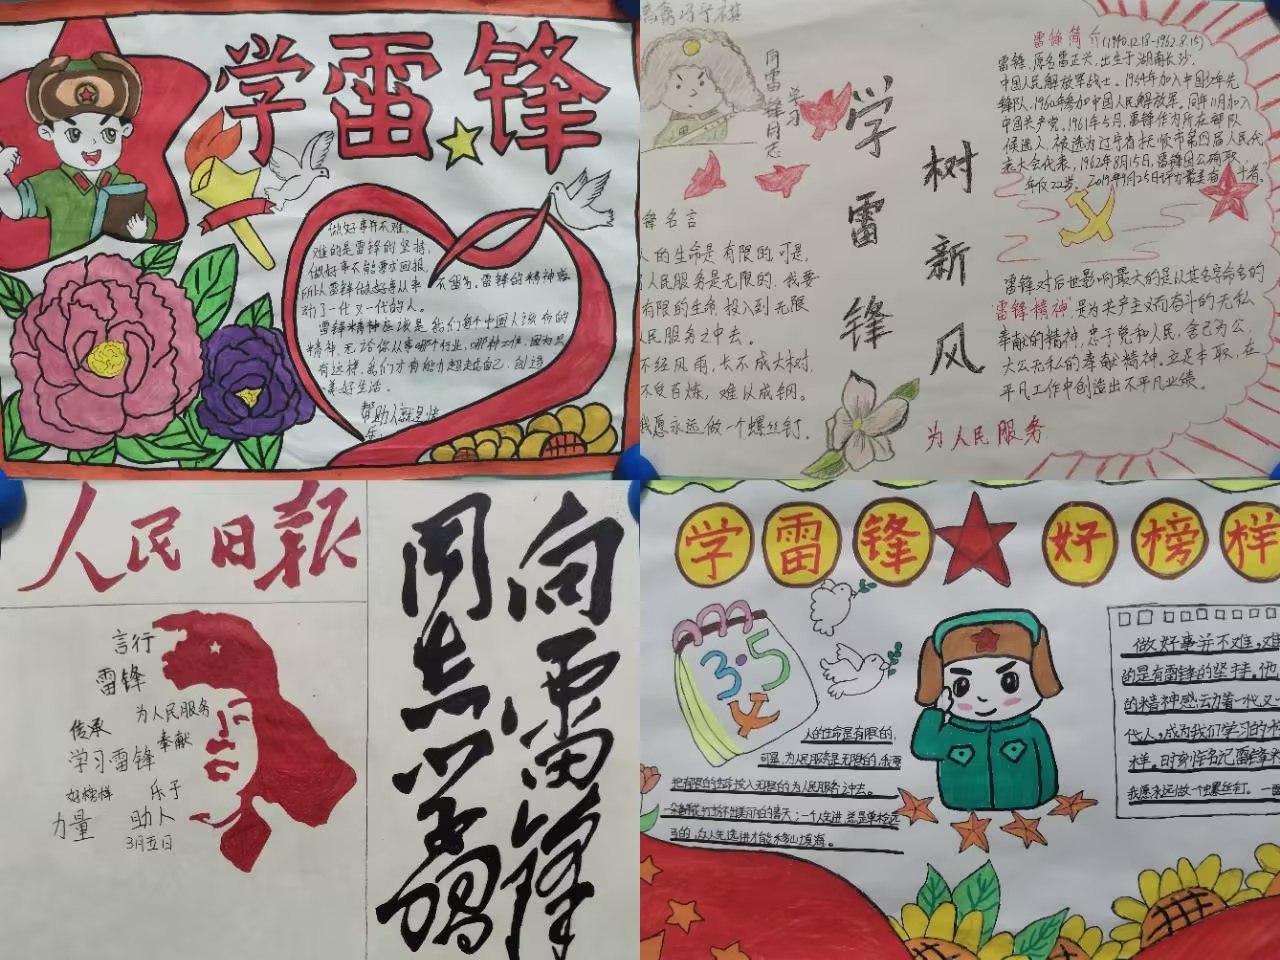 学雷锋
做好事并不难,
难的是雷锋的坚持,
做好事不能要求回报,
所以雷锋做好事从来
不留名,雷锋的精神感
动了一代又一代的人。
雷锋精神应该是我们每个中国人该有的
精神,无论你从事哪个行业,哪种工作,因为只
有这样,我们才有能力超越自己,创造
美好生活。
帮助人就是快
乐!
学雷锋
树新风
向雷锋同志
学习
雷锋简介(1940.12.18-1962.8.15)
雷锋,原名雷正兴,出生于湖南长沙,
中国人民解放军战士。1954年加入中国少年先
锋队,1960年参加中国人民解放军。同年11月加入
中国共产党。1961年5月,雷锋作为所在部队
候选人,被选为辽宁省抚顺市第四届人民代
表大会代表,1962年8月15日,雷锋因公殉职,
年仅22岁。2019年9月25日评为最美奋斗者。
锋名言
人的生命是有限的,可是,
人民服务是无限的,我要
有限的生命投入到无限
民服务之中去。
不经风雨,长不成大树,
不受百炼,难以成钢。
我愿永远做一个螺丝钉。
雷锋对后世影响最大的是以其名字命名的
"雷锋精神"是为共产主义而奋斗的无私
奉献的精神,忠于党和人民,舍己为公,
大公无私的奉献精神。立足本职,在
平凡工作中创造出不平凡业绩。
为人民服务
人民日报
言行
雷锋
为人民服务
传承
奉献
学习雷锋
好榜样
乐于
力量
助人
3月五日
向雷锋
同志学习
学雷锋好榜样
3·5
人的生命是有限的,
可是,为人民服务是无限的,我要
把有限的生命投入无限的为人民服务之中去。
做好事并不难,难
的是有雷锋的坚持。他
的精神感动着一代又一
代人,成为我们学习的榜
样。时刻铭记雷锋
我愿永远做一个螺丝钉。